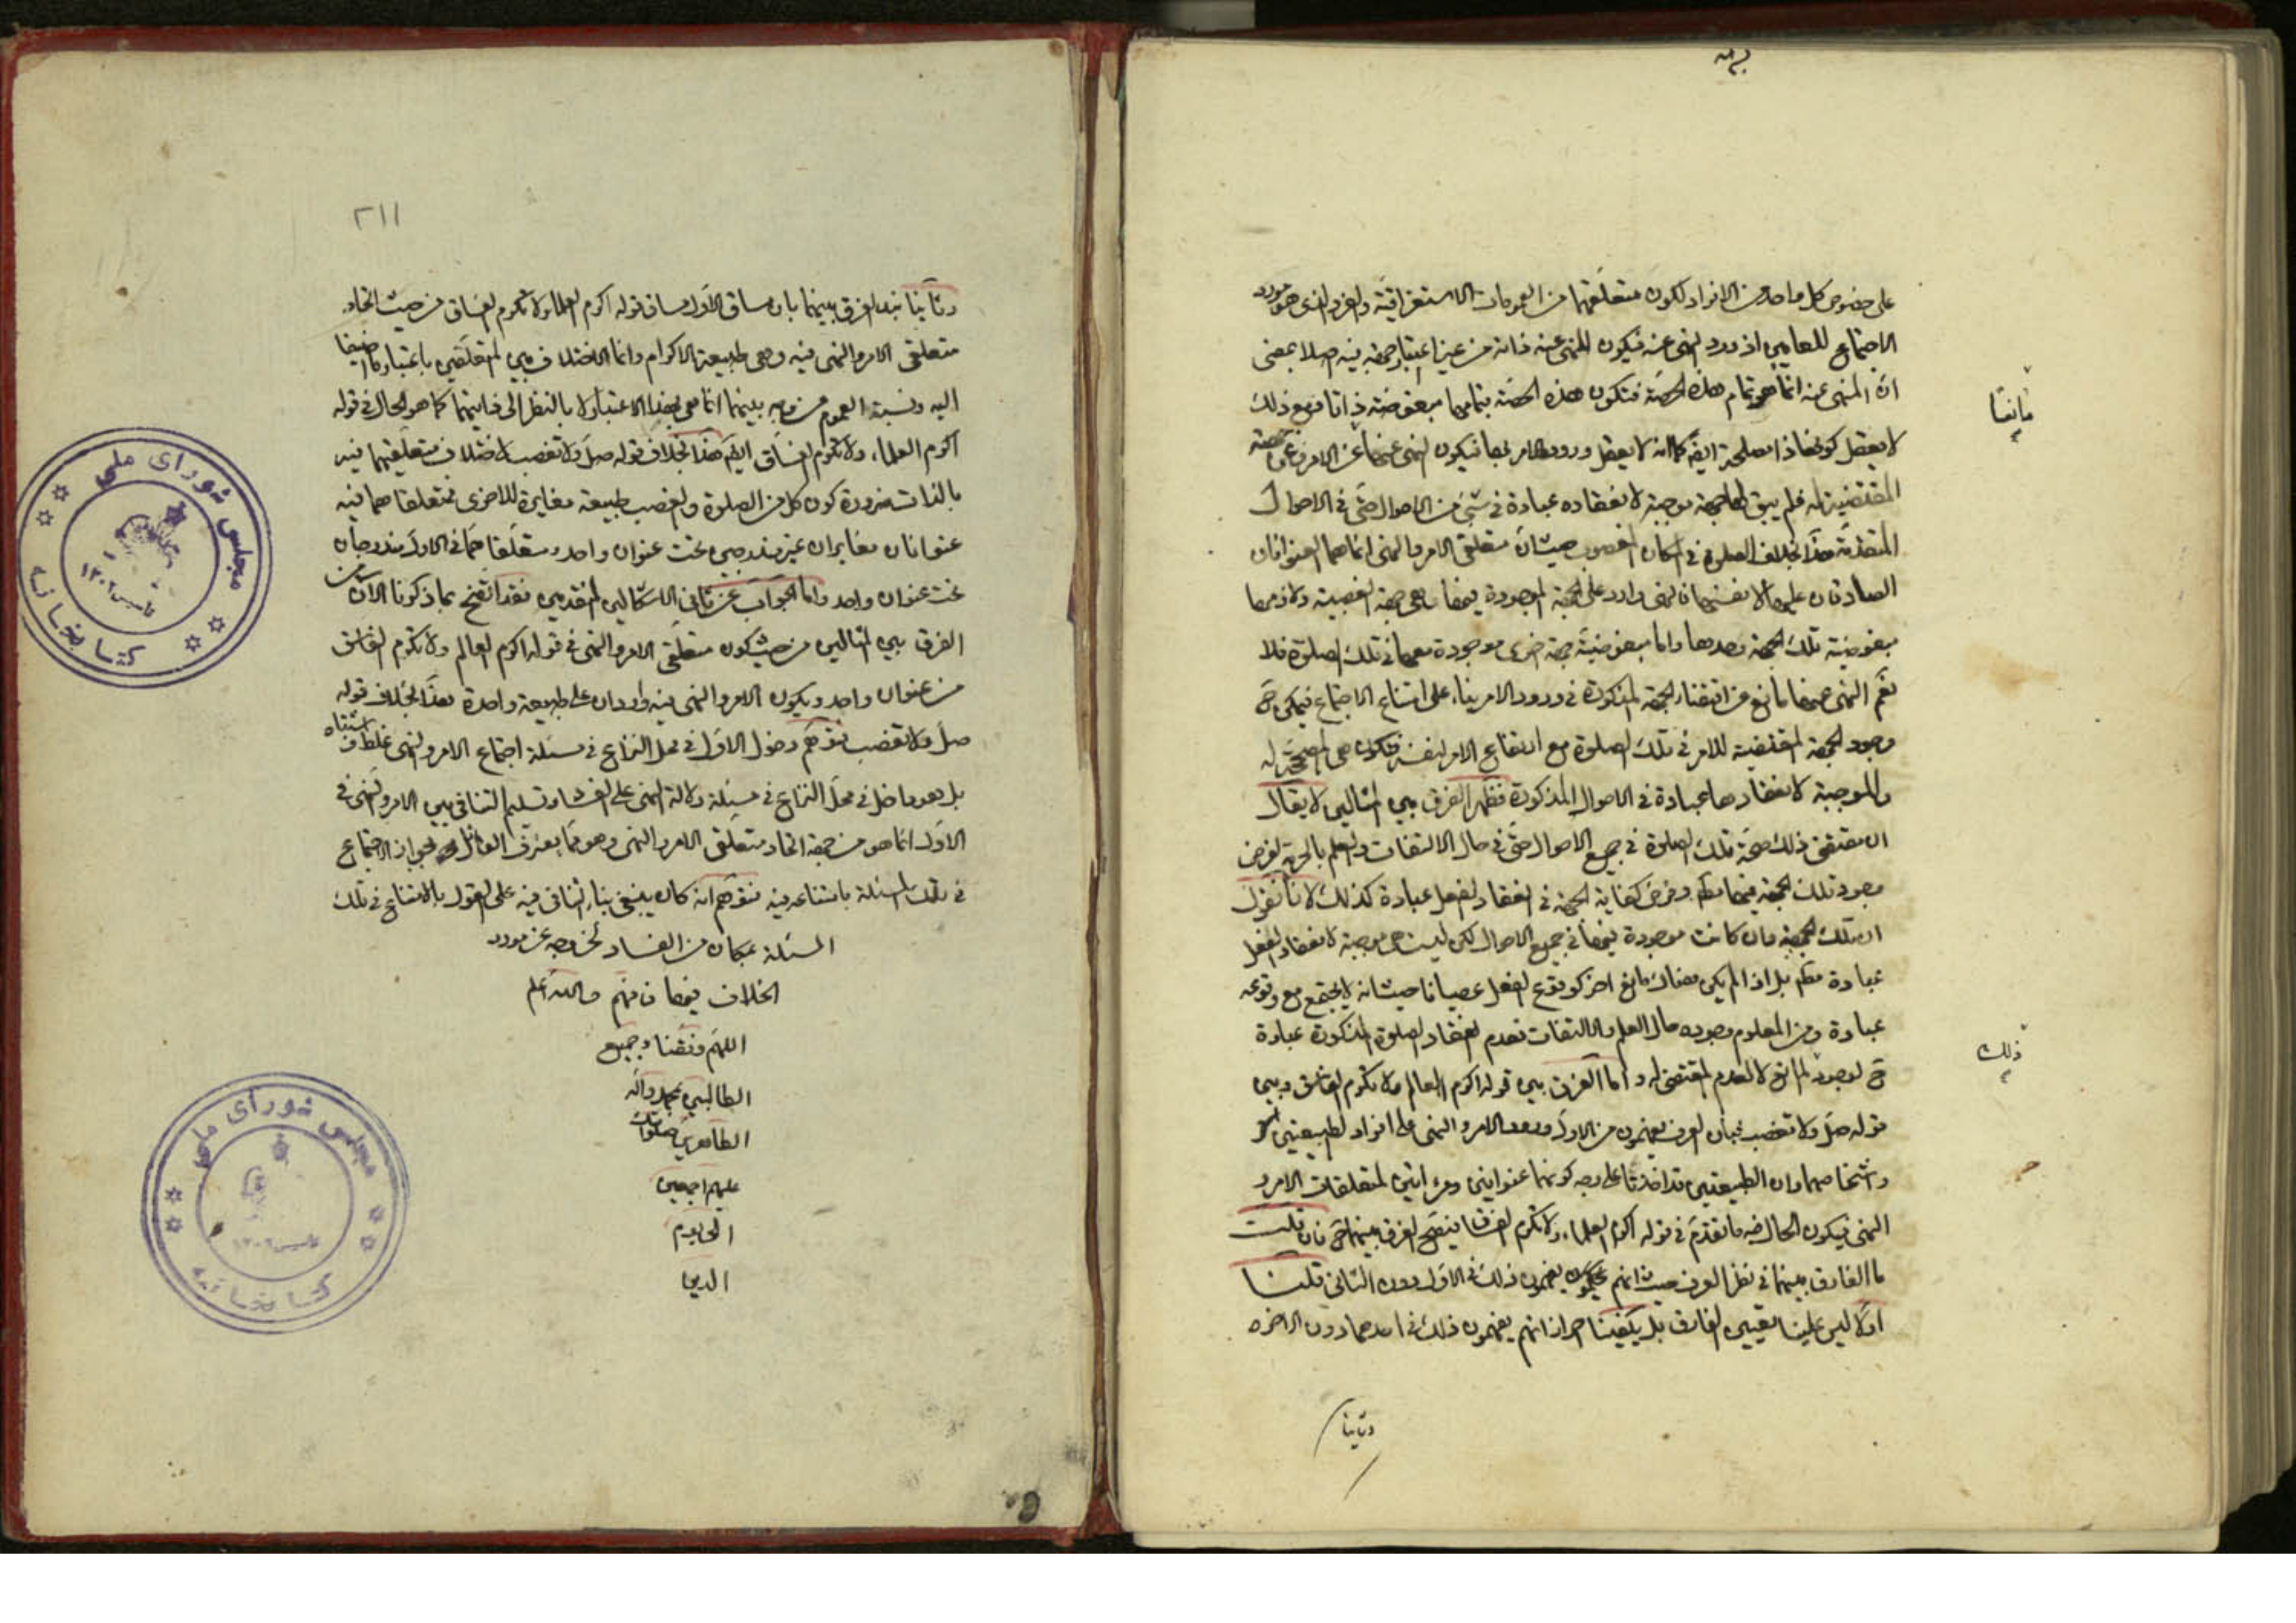 على خصوص كل واحد من الافراد لكون متعلقهما من العمومات الاستغراقية والفرد الذى هو مورد
الاجتماع للعامين اذ ورد النهى عنه فيكون المنهى عنه ذاته من غير اعتبار جهة فيه اصلا بمعنى
ان المنهى عنه انما هو تمام هذه الحصة فتكون هذه الحصة بتمامها مبغوضة ذاتا ومع ذلك
لا يعقل كونها ذا مصلحة ايضا كما انه لا يعقل ورود الامر بها فيكون النهى عنها عن الامر وعن جهته
المقتضية له فلم يبق لها جهة موجبة لانعقاده عبادة فى شىء من الاحوال حتى فى الاحوال
المتقدمة هذا بخلاف الصلوة فى المكان المغصوب حيث ان متعلق الامر والنهى انما هما العنوانان
الصادقان عليها لا نفسها فالنهى وارد على الجهة الموجودة فيها وهى جهة الغصبية ولازمها
مبغوضية تلك الجهة وحدها واما مبغوضية جهة اخرى موجودة معها فى تلك الصلوة فلا
نعم النهى عنها مانع عن اقتضاء الجهة المذكورة فى ورود الامر بناء على امتناع الاجتماع فيمكن ح
وجود الجهة المقتضية للامر فى تلك الصلوة مع ارتفاع الامر لنفسه فتكون هى المصححة له
والموجبة لانعقادها عبادة فى الاحوال المذكورة فظهر الفرق بين المثالين لا يقال
ان مقتضى ذلك صحة تلك الصلوة فى جميع الاحوال حتى فى حال الالتفات والعلم بالحرمة لفرض
وجود تلك الجهة فيها مطم وفرض كفاية الجهة فى انعقاد الفعل عبادة كذلك لانا نقول
ان تلك الجهة وان كانت موجودة فيها فى جميع الاحوال لكن ليست هى موجبة لانعقاد الفعل
عبادة مطم بل اذا لم يكن هناك مانع اخر كوقوع الفعل عصيانا حيث انه لا يجتمع مع وقوعه
عبادة ومن المعلوم وجوده حال العلم والالتفات فعدم انعقاد الصلوة المذكورة عبادة
ح لوجود المانع لا لعدم المقتضى له واما الفرق بين قوله اكرم العالم ولا تكرم الفاسق وبين
قوله صل ولا تغصب فبان العرف يفهمون من الاول ورود الامر والنهى على افراد الطبيعتين
واشخاصهما وان الطبيعتين قد اخذتا على وجه كونهما عنوانين ومراتين لمتعلقات الامر و
النهى فيكون الحال فيه ما تقدم فى قوله اكرم العلماء ولا تكرم الفساق فيتضح الفرق بينهما ح فان قلت
ما الفارق بينهما فى نظر العرف حيث انهم يفهمون ذلك فى الاول دون الثانى قلنا
اولا ليس علينا تعيين الفارق بل يكفينا احراز انهم يفهمون ذلك فى احدهما دون الاخر
مانعا
ذلك
وثانيا
٢١١
وثانيا نبدى الفرق بينهما بان مساق الاول مساق قوله اكرم العلماء ولا تكرم الفساق من حيث اتحاد
متعلقى الامر والنهى فيه وهى طبيعة الاكرام وانما الاختلاف بين المتعلقين باعتبار ما اضيفا
اليه ونسبة العموم من وجه بينهما انما هى بهذا الاعتبار لا بالنظر الى ذاتيهما كما هو الحال فى قوله
اكرم العلماء ولا تكرم الفساق ايضا هذا بخلاف قوله صل ولا تغصب لاختلاف متعلقيهما فيه
بالذات ضرورة كون كل من الصلوة والغصب طبيعة مغايرة للاخرى فمتعلقا هما فيه
عنوانان مغايران غير مندرجين تحت عنوان واحد ومتعلقا هما فى الاول مندرجان
تحت عنوان واحد واما الجواب عن ثانى الاشكالين المتقدمين فقد اتضح بما ذكرنا الان من
الفرق بين المثالين من حيث كون متعلقى الامر والنهى فى قوله اكرم العالم ولا تكرم الفاسق
من عنوان واحد ويكون الامر والنهى فيه واردان على طبيعة واحدة بهذا بخلاف قوله
صل ولا تغصب فتوهم دخول الاول فى محل النزاع فى مسئلة اجتماع الامر والنهى غلط واشتباه
بل هو داخل فى محل النزاع فى مسئلة دلالة النهى على الفساد وتسليم التنافى بين الامر والنهى فى
الاول انما هو من جهة اتحاد متعلقى الامر والنهى وهو مما يعترف القائل بجواز الاجتماع
فى تلك المسئلة بامتناعه فيه فتوهم انه كان ينبغى بناء التنافى فيه على القول بالامتناع فى تلك
المسئلة بمكان من الفساد لخروجه عن مورد
الخلاف فيها فافهم والله اعلم
اللهم وفقنا وجميع
الطالبين بمحمد واله
الطاهرين صلواتك
عليهم اجمعين
الى يوم
الدين
مجلس شوراى ملى
كتابخانه
تاسيس ١٣٠٢
مجلس شوراى ملى
كتابخانه